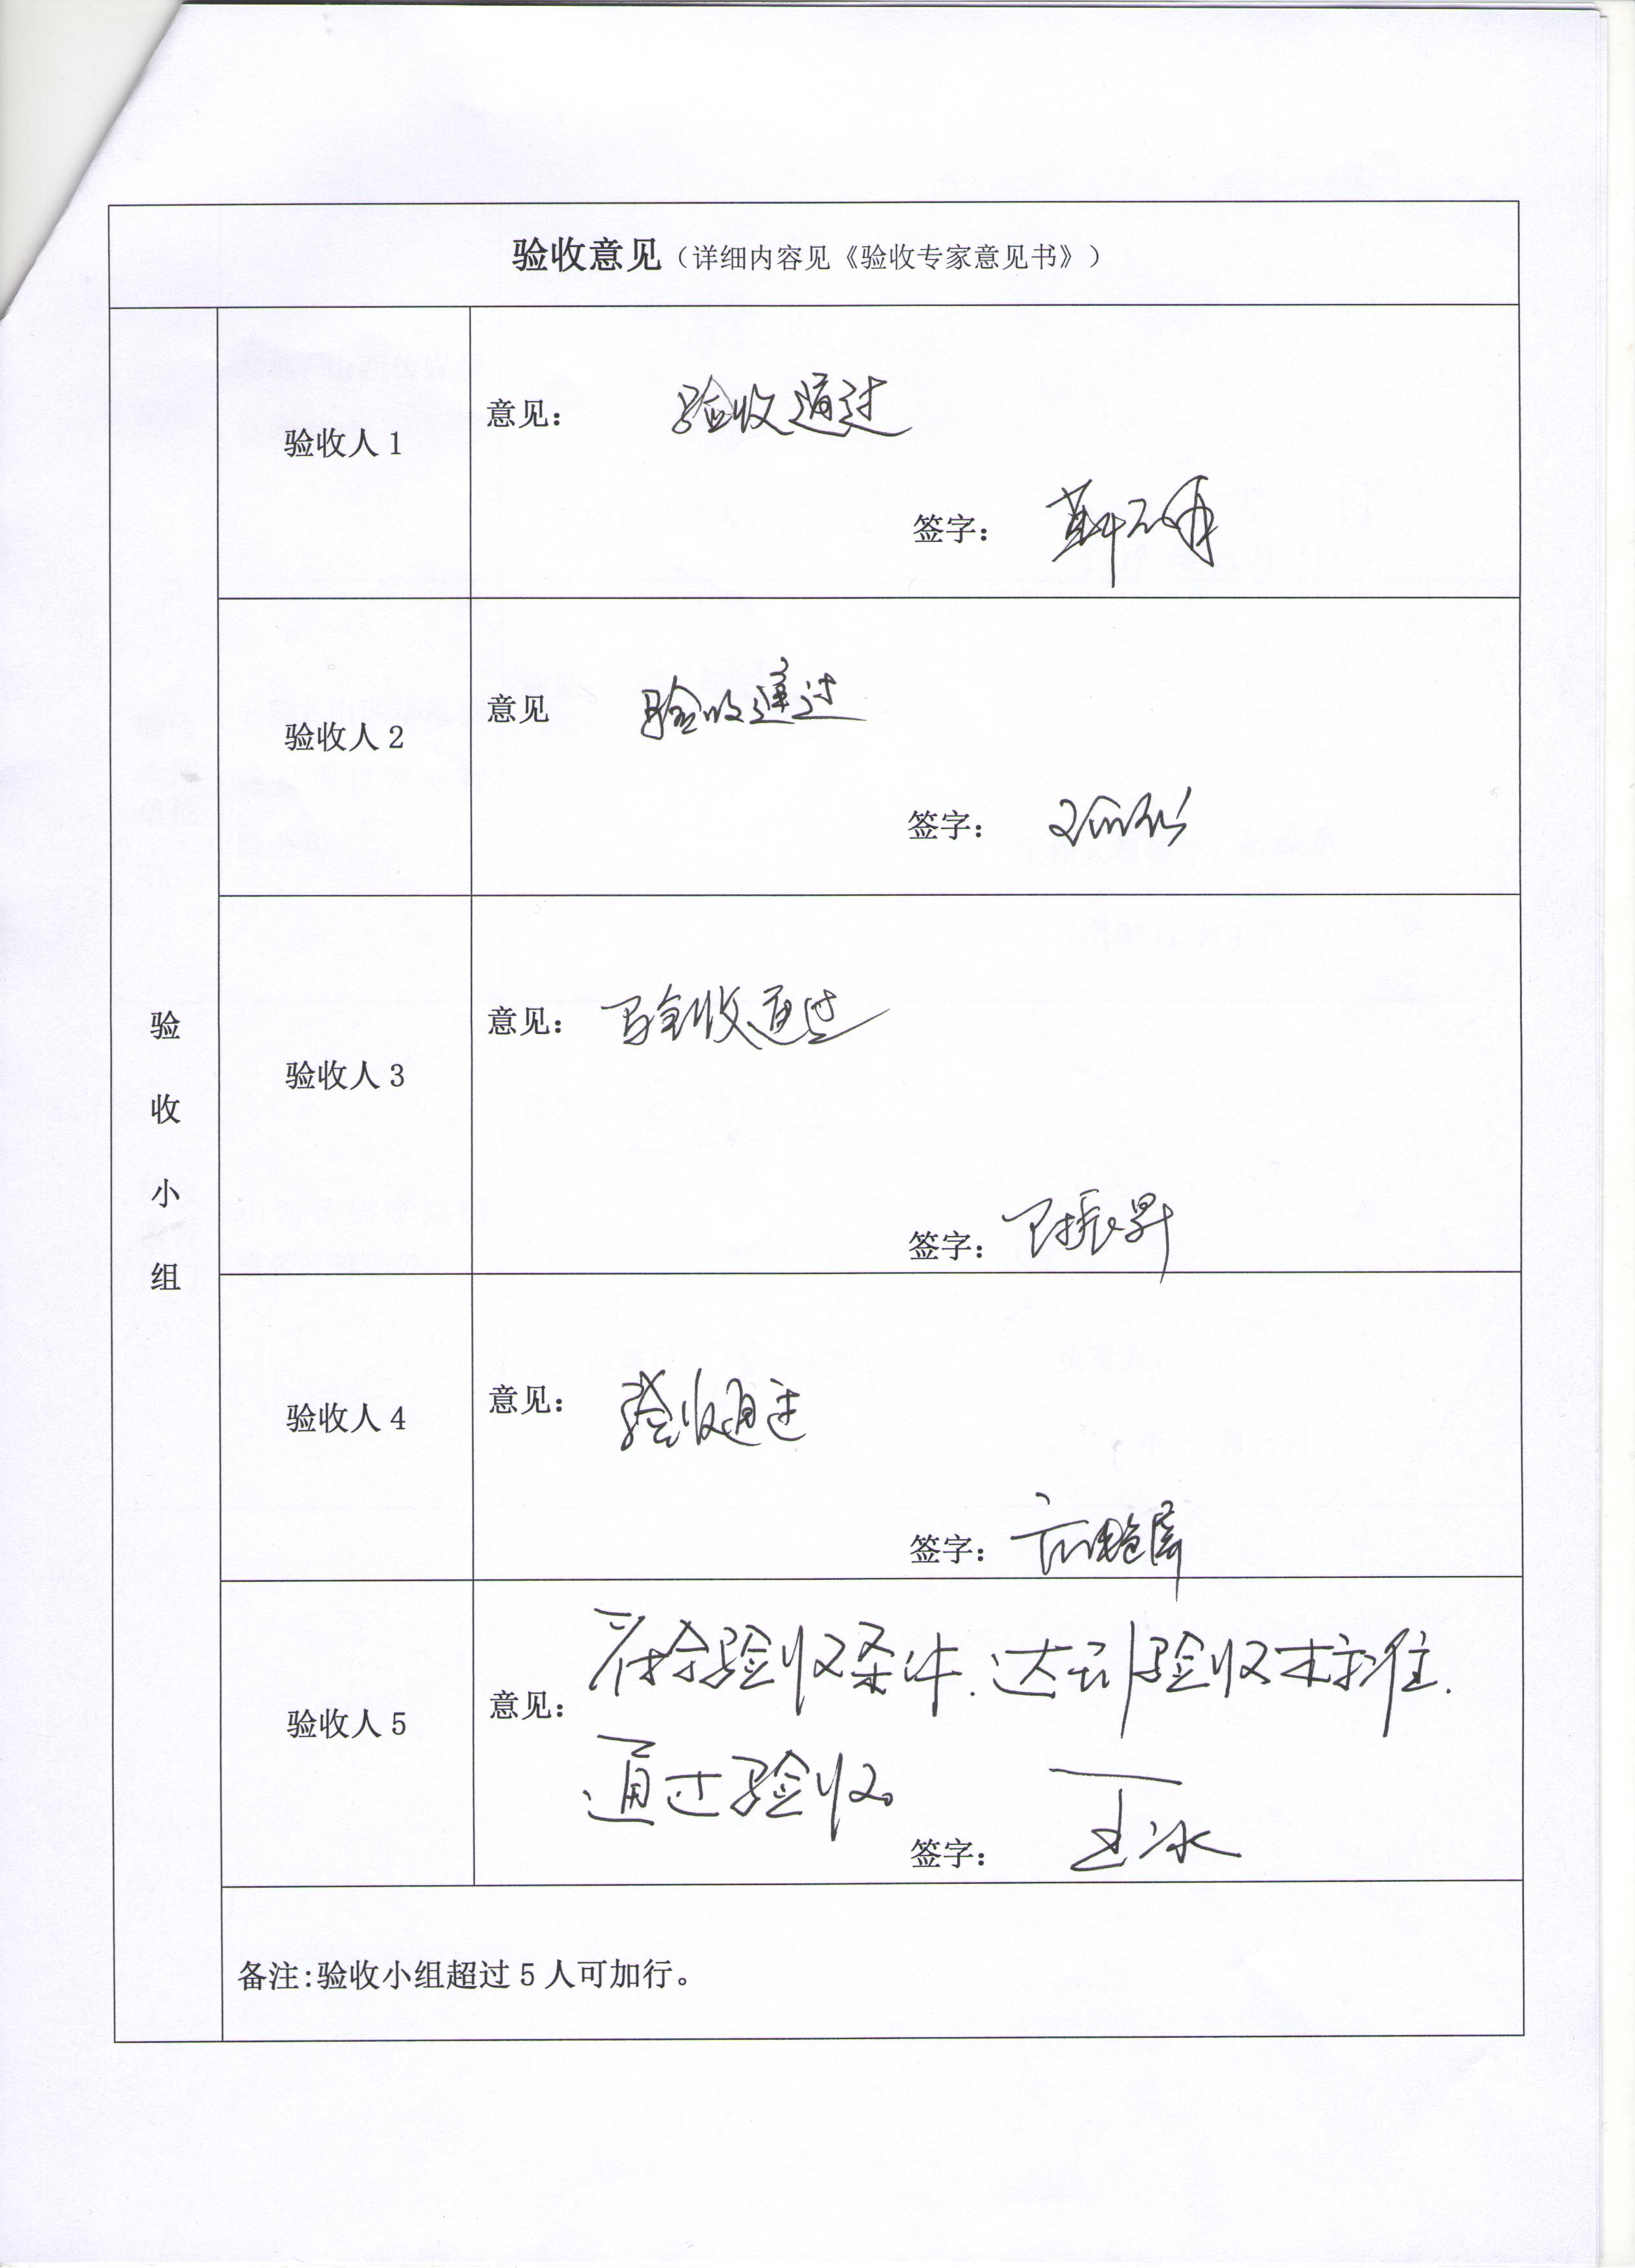 验收意见（详细内容见《验收专家意见书》）
验收小组
验收人1
意见： 验收通过
签字：
验收人2
意见 验收通过
签字：
验收人3
意见： 验收通过
签字： 振昇
验收人4
意见： 验收通过
签字：
验收人5
意见： 符合验收条件.达到验收标准.
通过验收。
签字： 王冰
备注:验收小组超过5人可加行。